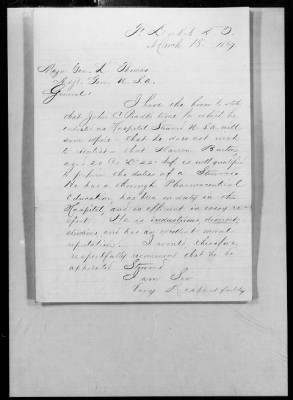 March 18, 1867.
Major Gen. L. Thomas
Adjt. Gen. U.S.A.
General:
I have the honor to state
that John C. time for which he
enlisted as Hospital Steward U.S.A. will
soon expire. That he does not wish
to reenlist & that
Co. D 22 Inf. is well qualified
to perform the duties of a Steward.
He has a thorough Pharmaceutical
Education, has been on duty in the
Hospital, and is efficient in every re-
spect. He is industrious,
studious, and has an excellent moral
reputation. I would, therefore
respectfully recommend that he be
appointed Steward.
I am Sir
Very Respectfully